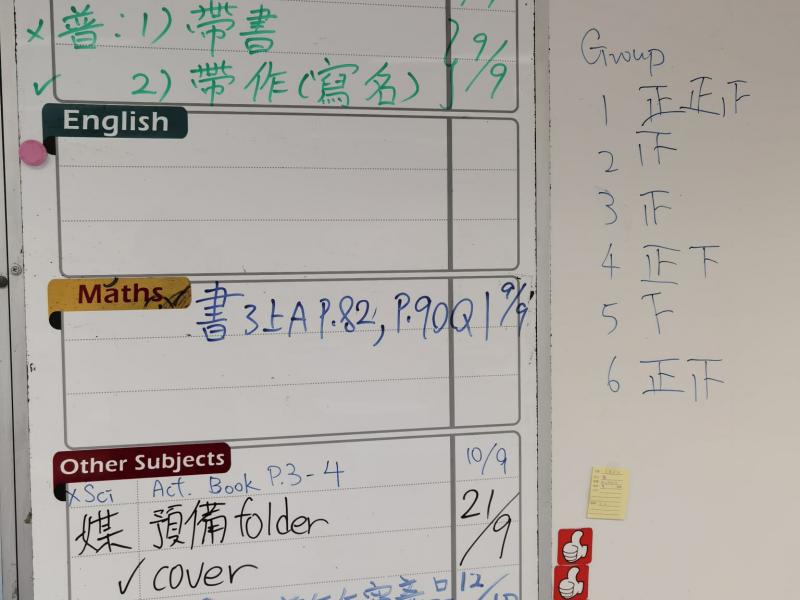 × 普：1) 帶書
✓ 2) 帶作(寫名) } 9/9
English
Maths
書3上A P.82, P.90Q1 9/9
Other Subjects
×Sci Act. Book P.3-4 10/9
媒 預備folder 21/9
✓cover
12/10
Group
1 正正下
2 下
3 下
4 正下
5 下
6 正下